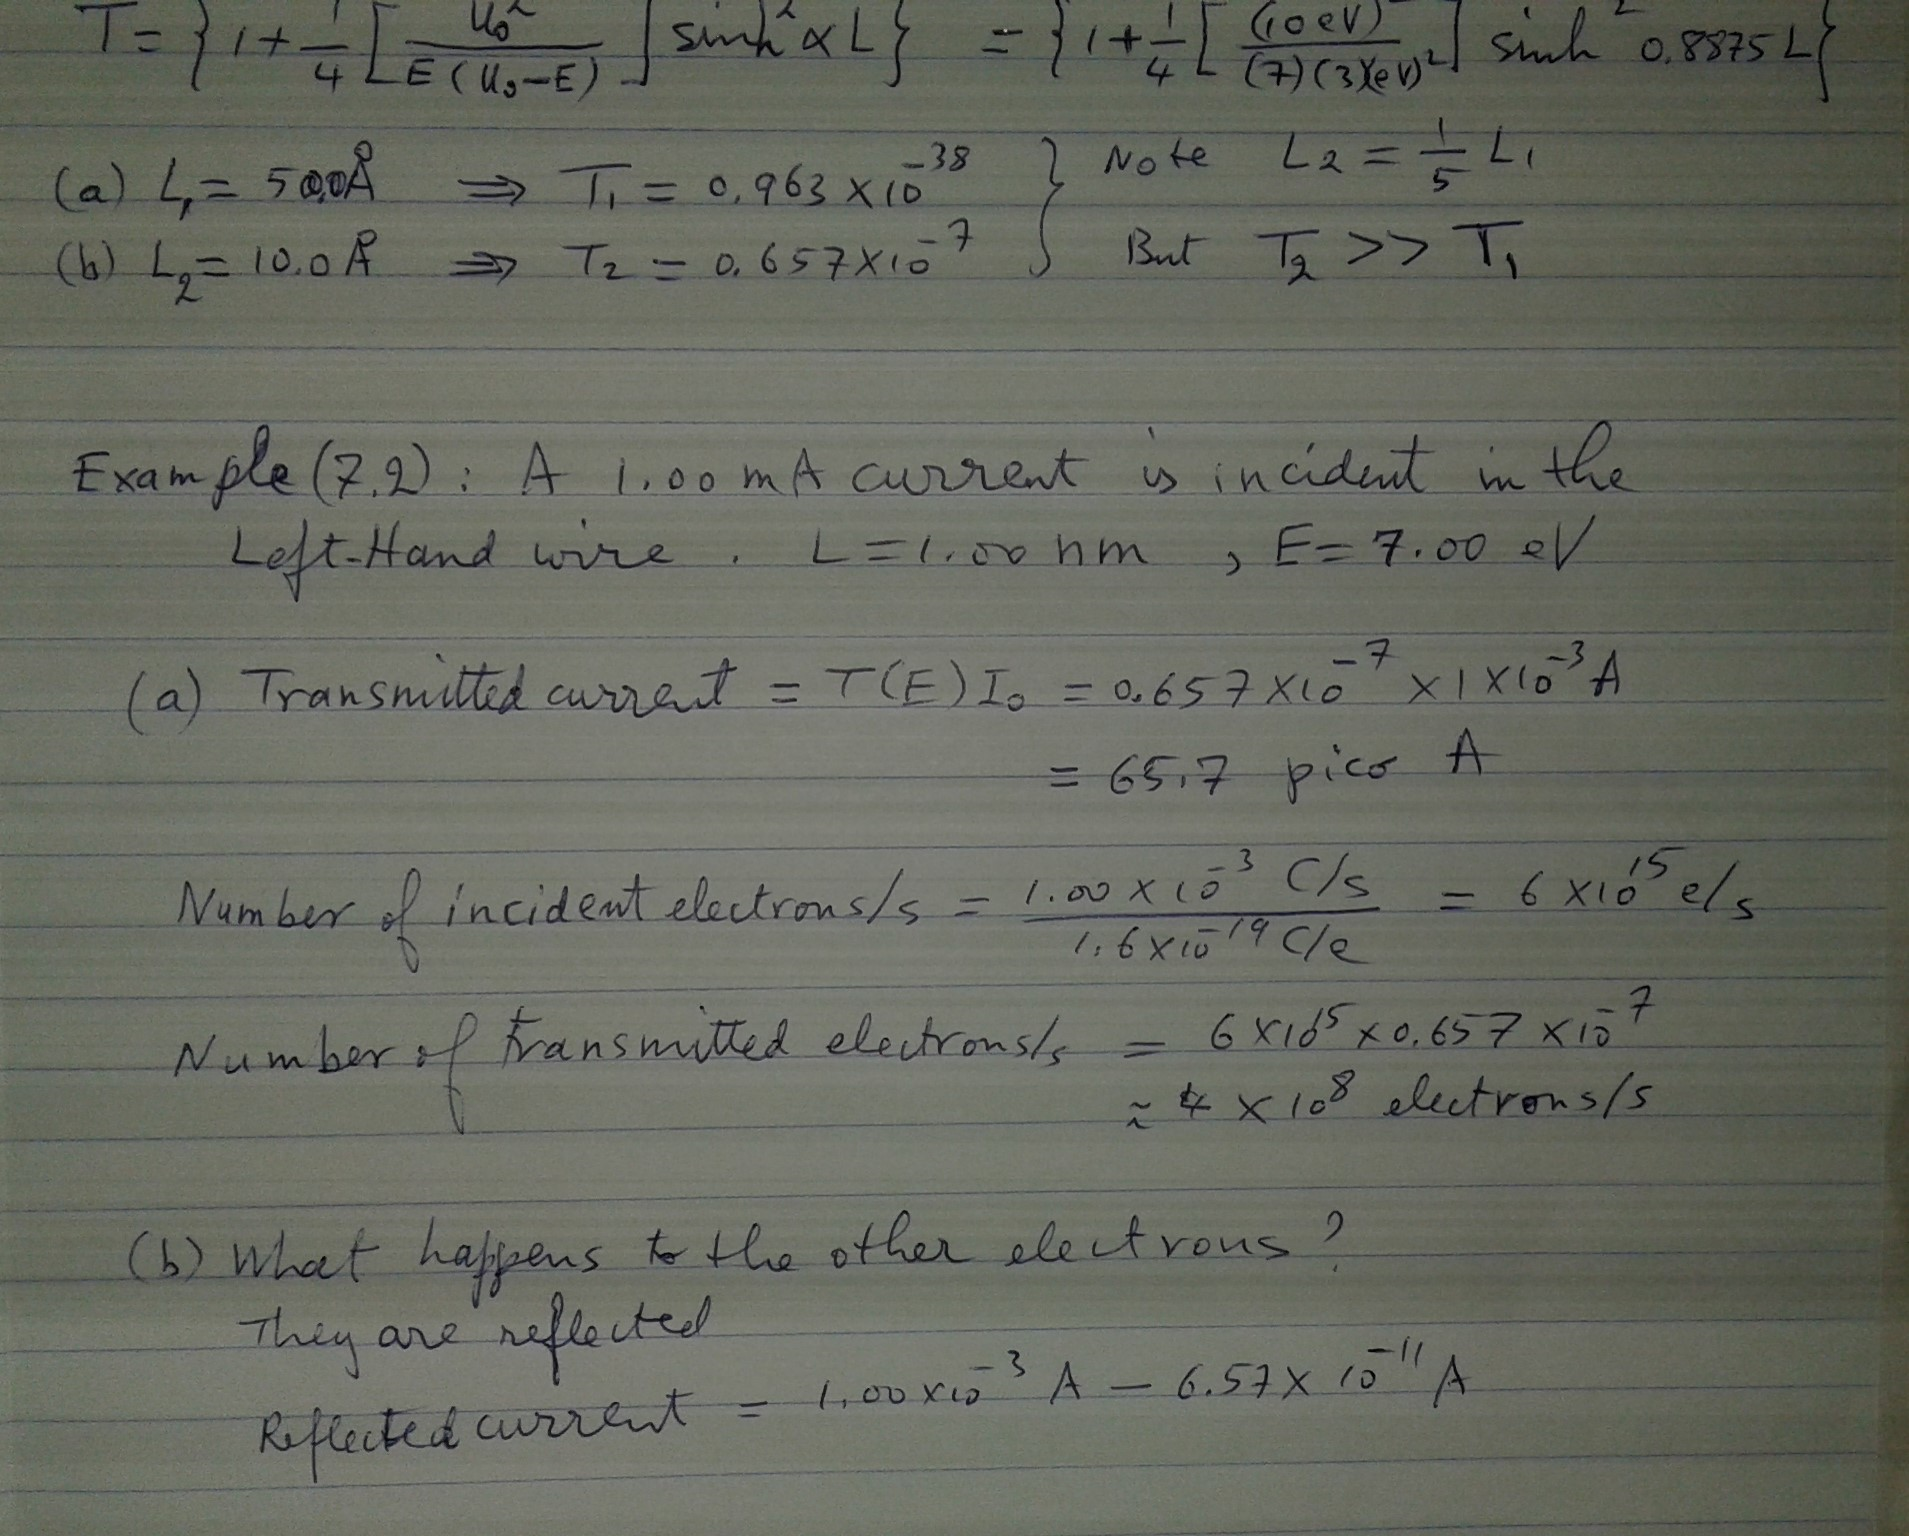 T = { 1 + 1/4 [ U₀² / E(U₀−E) ] sinh² αL } = { 1 + 1/4 [ (10 eV)² / (7)(3)(eV)² ] sinh² 0.8875 L }
(a) L₁ = 50.0Å ⇒ T₁ = 0.963 × 10⁻³⁸ } Note L₂ = 1/5 L₁
(b) L₂ = 10.0 Å ⇒ T₂ = 0.657×10⁻⁷ } But T₂ >> T₁
Example (7.2) : A 1.00 mA current is incident in the
Left-Hand wire . L = 1.00 nm , E = 7.00 eV
(a) Transmitted current = T(E) I₀ = 0.657 ×10⁻⁷ × 1 × 10⁻³ A
= 65.7 pico A
Number of incident electrons/s = 1.00 × 10⁻³ C/s / 1.6×10⁻¹⁹ C/e = 6 ×10¹⁵ e/s
Number of transmitted electrons/s = 6 ×10¹⁵ × 0.657 ×10⁻⁷
≈ 4 × 10⁸ electrons/s
(b) What happens to the other electrons ?
They are reflected
Reflected current = 1.00 ×10⁻³ A − 6.57 × 10⁻¹¹ A